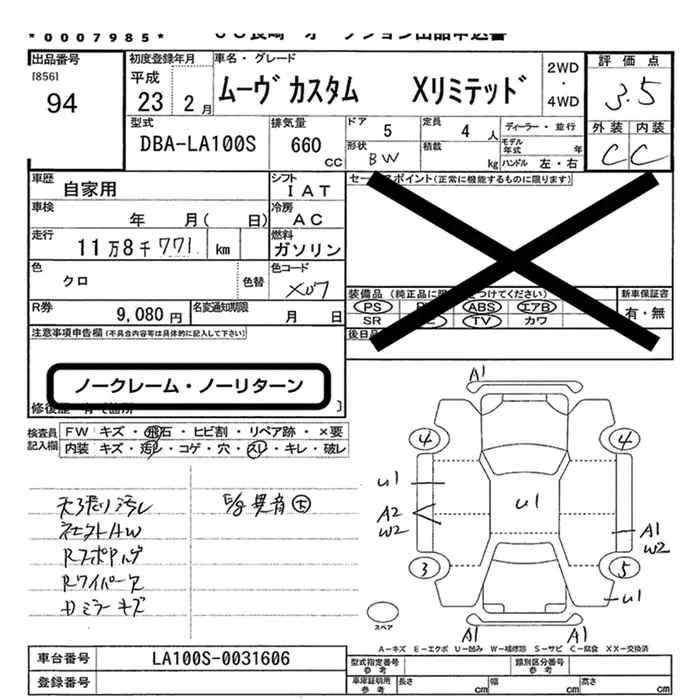 *0007985*
出品番号
[856]
94
初度登録年月
平成
23年 2月
車名・グレード
ムーヴ カスタム Xリミテッド
2WD
・
4WD
評価点
3.5
外装 内装
C C
型式
DBA-LA100S
排気量
660
CC
ドア 5
定員 4人
ディーラー・並行
形状 BW
積載 kg
モデル年式 年
ハンドル 左・右
車歴 自家用
シフト IAT
車検 年 月( 日)
冷房 AC
走行 11万8千771 km
燃料 ガソリン
色 クロ
色替
色コード X07
R券 9,080円
名変通知期限 月 日
セールスポイント(正常に機能するものに限ります)
装備品
PS ABS エアB
SR TV カワ
新車保証書
有・無
注意事項申告欄(不具合内容等は具体的に記入して下さい)
ノークレーム・ノーリターン
検査員記入欄
FW キズ・飛石・ヒビ割・リペア跡・×要
内装 キズ・汚レ・コゲ・穴・スレ・キレ・破レ
天張り汚レ
社外AW
Rワイパー欠
ミラーキズ
E/g異音 大
A1
4 4
U1
U1
A2
W2
A1
W2
3 5
U1
A1 A1
スペア
A-キズ E-エクボ U-凹み W-補修跡 S-サビ C-腐食 XX-交換済
車台番号 LA100S-0031606
登録番号
型式指定番号
参考
類別区分番号
参考
車庫証明用
参考
長さ cm 幅 cm 高さ cm